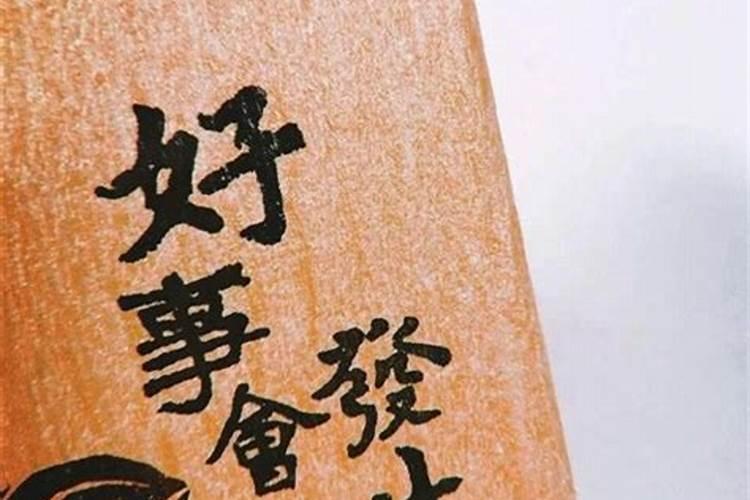 好事會
發